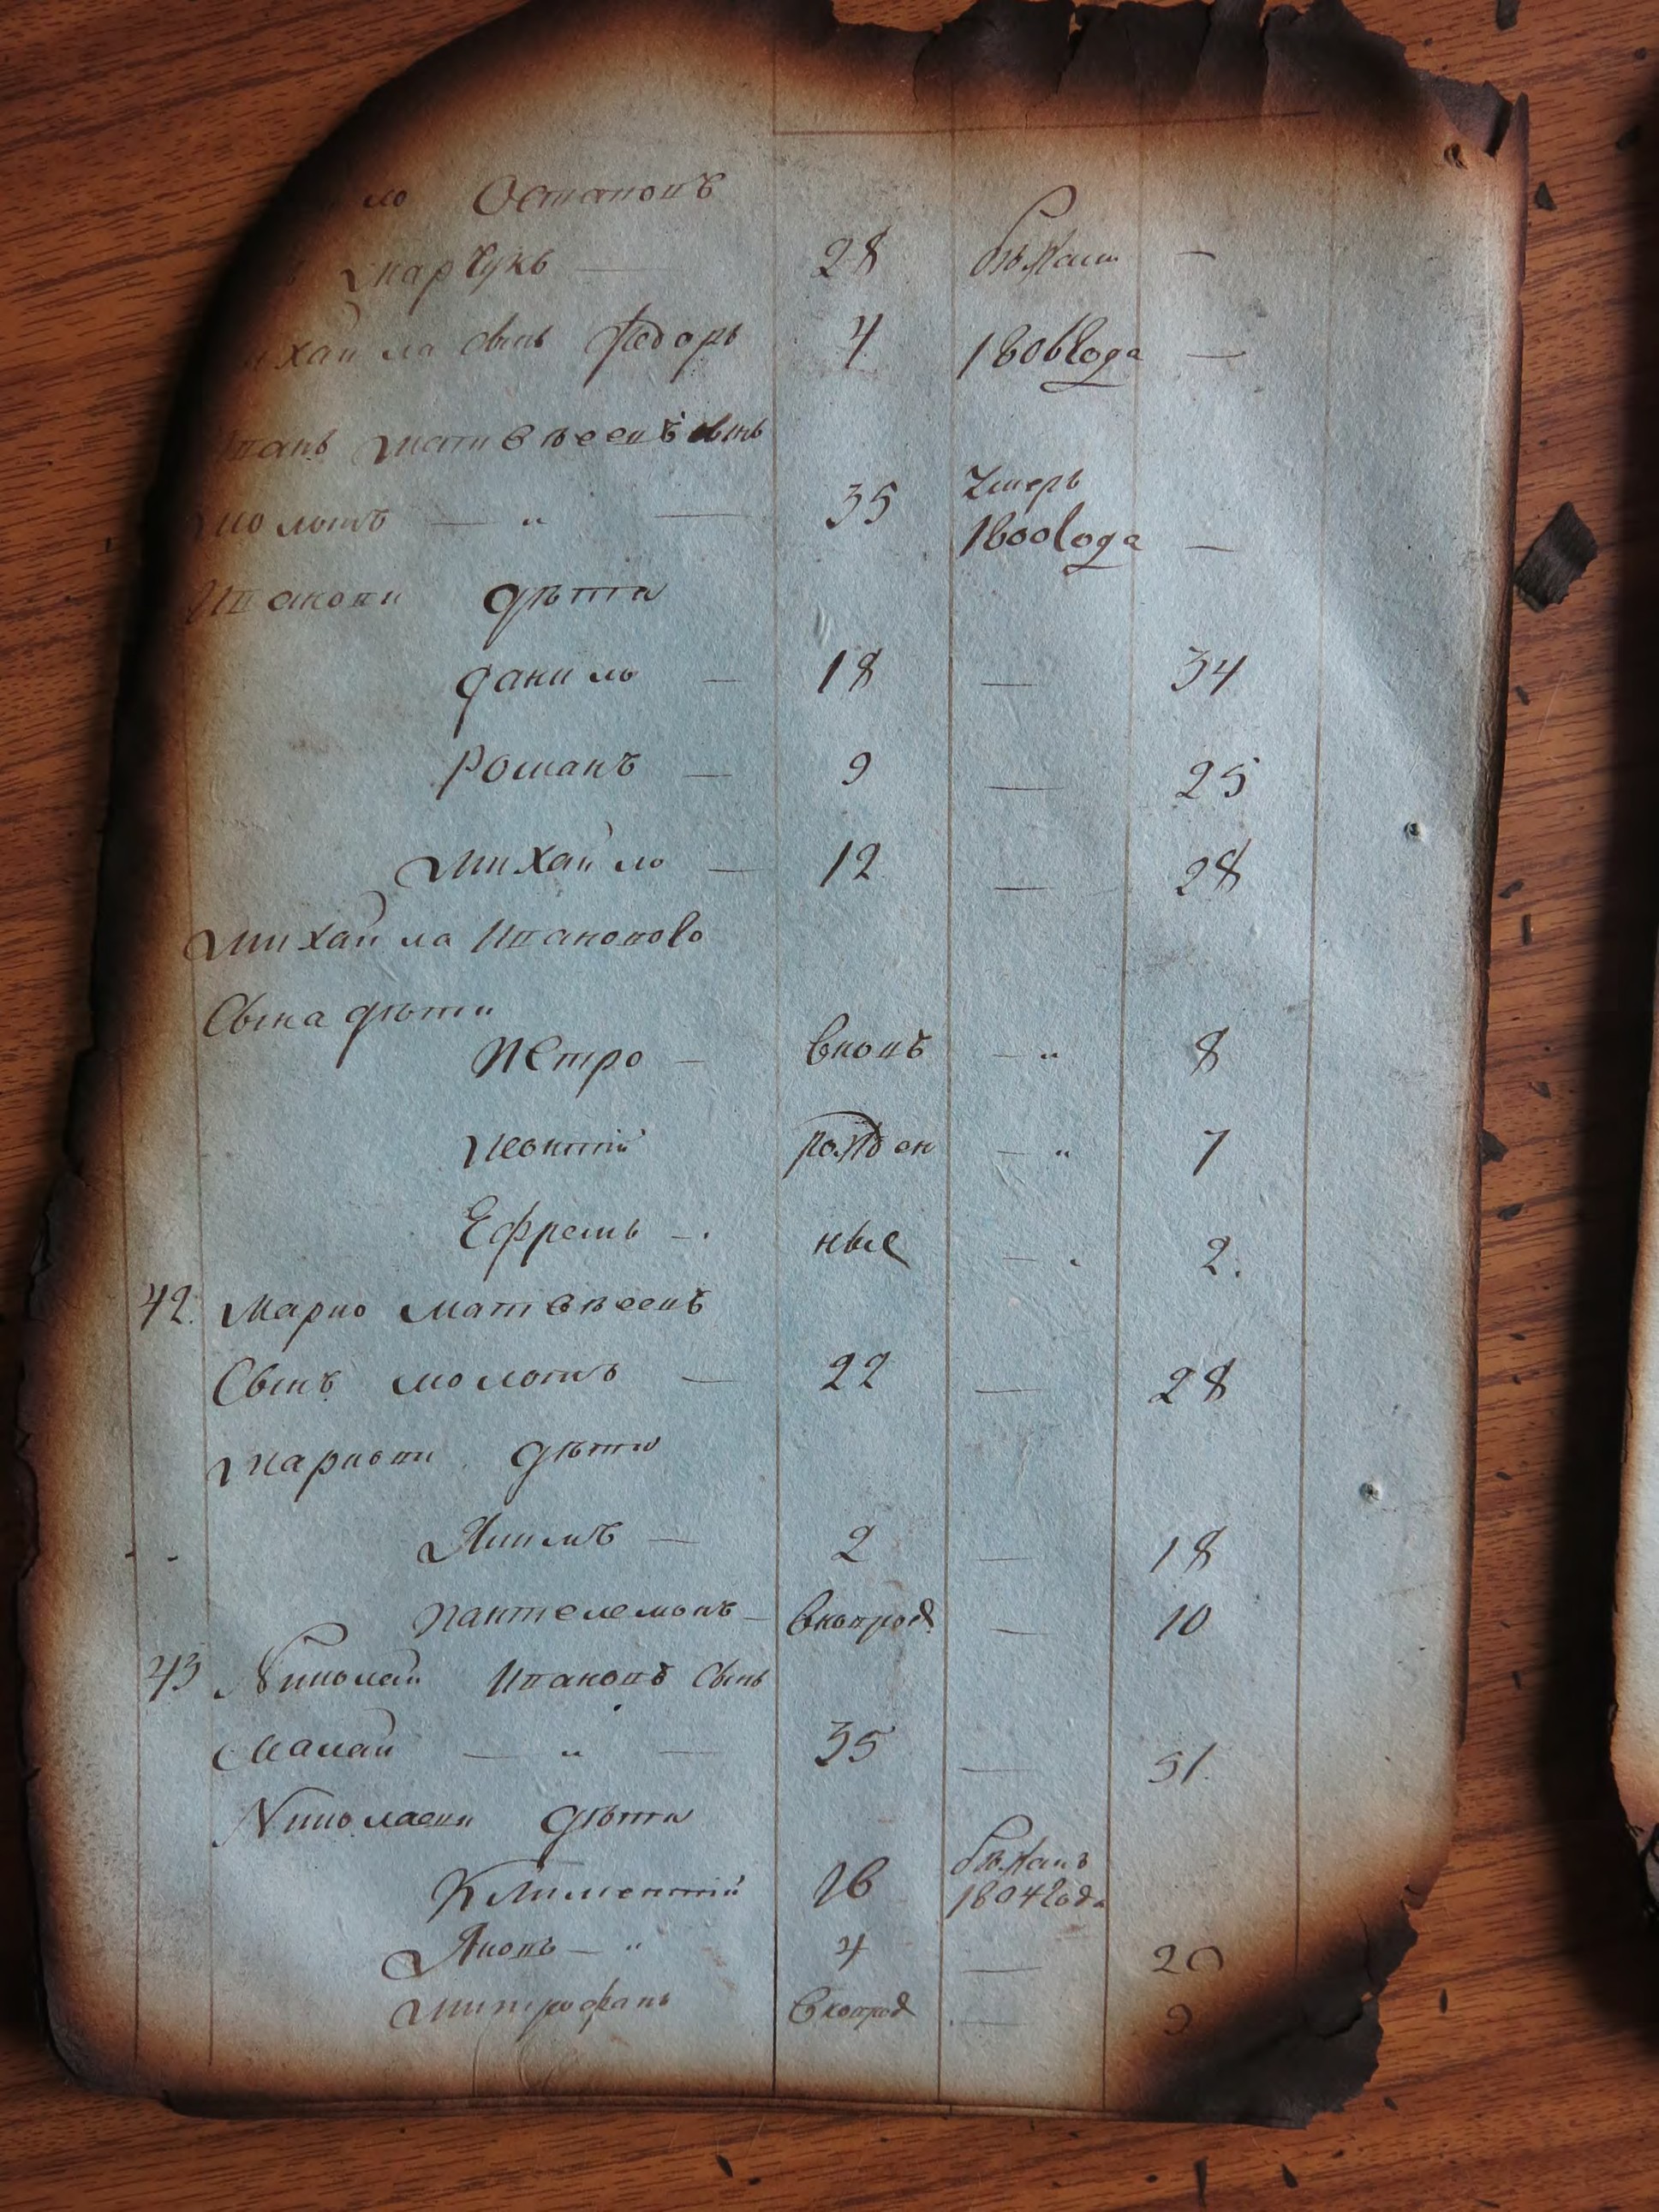 ло Остаповъ
Марчукъ — 28 бѣжали —
хайла сынъ Федоръ 4 1806 года —
Иванъ Матвѣевъ сынъ
Молотъ — " — 35 Умеръ 1800 года —
Ивановы дѣти
Данило — 18 — 34
Романъ — 9 — 25
Михайло — 12 — 28
Михайла Иванового
Сына дѣти
Петро — вновь — " 8
Леонтій рожден — " 7
Ефремъ — . ные — . 2.
42. Марко Матвѣевъ
Сынъ Молотъ — 22 — 28
Марковы дѣти
Якимъ — 2 — 18
Пантелемонъ — вновърод — 10
43 Николай Ивановъ Сынъ
Малай — " — 35 — 51.
Николаевы дѣти
Климентій 16 бѣжалъ 1804 года
Яковъ — " 4 — 20
Митрофанъ вновърод — 9